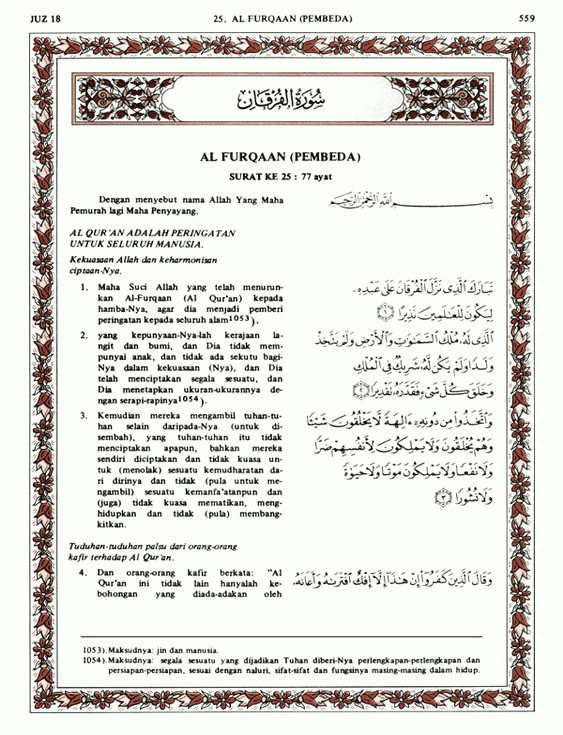 JUZ 18 25. AL FURQAAN (PEMBEDA) 559
سُورَةُ الفُرْقَانِ
AL FURQAAN (PEMBEDA)
SURAT KE 25 : 77 ayat
Dengan menyebut nama Allah Yang Maha
Pemurah lagi Maha Penyayang.
بِسْمِ اللَّهِ الرَّحْمَٰنِ الرَّحِيمِ
AL QUR'AN ADALAH PERINGATAN
UNTUK SELURUH MANUSIA.
Kekuasaan Allah dan keharmonisan
ciptaan-Nya.
1. Maha Suci Allah yang telah menurun-
kan Al-Furqaan (Al Qur'an) kepada
hamba-Nya, agar dia menjadi pemberi
peringatan kepada seluruh alam1053),
تَبَارَكَ الَّذِى نَزَّلَ الْفُرْقَانَ عَلَىٰ عَبْدِهِۦ
لِيَكُونَ لِلْعَٰلَمِينَ نَذِيرًا ﴿١﴾
2. yang kepunyaan-Nya-lah kerajaan la-
ngit dan bumi, dan Dia tidak mem-
punyai anak, dan tidak ada sekutu bagi-
Nya dalam kekuasaan (Nya), dan Dia
telah menciptakan segala sesuatu, dan
Dia menetapkan ukuran-ukurannya de-
ngan serapi-rapinya1054).
الَّذِى لَهُۥ مُلْكُ السَّمَٰوَٰتِ وَالْأَرْضِ وَلَمْ يَتَّخِذْ
وَلَدًا وَلَمْ يَكُن لَّهُۥ شَرِيكٌ فِى الْمُلْكِ
وَخَلَقَ كُلَّ شَىْءٍ فَقَدَّرَهُۥ تَقْدِيرًا ﴿٢﴾
3. Kemudian mereka mengambil tuhan-tu-
han selain daripada-Nya (untuk di-
sembah), yang tuhan-tuhan itu tidak
menciptakan apapun, bahkan mereka
sendiri diciptakan dan tidak kuasa un-
tuk (menolak) sesuatu kemudharatan da-
ri dirinya dan tidak (pula untuk me-
ngambil) sesuatu kemanfa'atanpun dan
(juga) tidak kuasa mematikan, meng-
hidupkan dan tidak (pula) membang-
kitkan.
وَاتَّخَذُوا۟ مِن دُونِهِۦٓ ءَالِهَةً لَّا يَخْلُقُونَ شَيْـًٔا
وَهُمْ يُخْلَقُونَ وَلَا يَمْلِكُونَ لِأَنفُسِهِمْ ضَرًّا
وَلَا نَفْعًا وَلَا يَمْلِكُونَ مَوْتًا وَلَا حَيَوٰةً
وَلَا نُشُورًا ﴿٣﴾
Tuduhan-tuduhan palsu dari orang-orang
kafir terhadap Al Qur'an.
4. Dan orang-orang kafir berkata: "Al
Qur'an ini tidak lain hanyalah ke-
bohongan yang diada-adakan oleh
وَقَالَ الَّذِينَ كَفَرُوٓا۟ إِنْ هَٰذَآ إِلَّآ إِفْكٌ افْتَرَىٰهُ وَأَعَانَهُۥ
1053). Maksudnya: jin dan manusia.
1054). Maksudnya: segala sesuatu yang dijadikan Tuhan diberi-Nya perlengkapan-perlengkapan dan
persiapan-persiapan, sesuai dengan naluri, sifat-sifat dan fungsinya masing-masing dalam hidup.